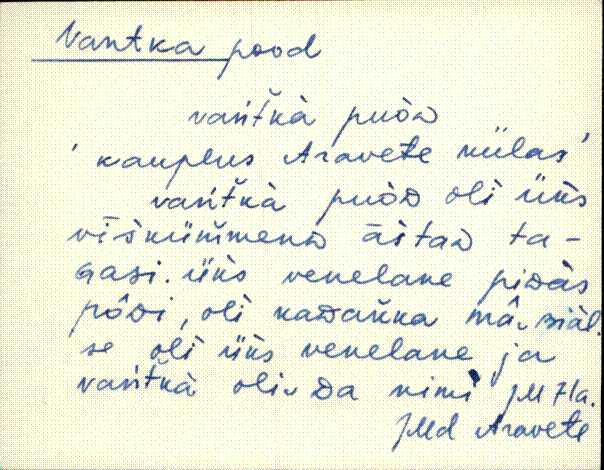 Vantka pood
vańt̆kà puòᴅ
'kauplus Aravete külas'
vańt̆kà puòᴅ oli üks
vīšküńmenᴅ āstaᴅ ta-
Gasi. üks venelane piᴅàs
pôᴅi, oli kaᴅakka mâ, siàl.
se oli üks venelane ja
vańt̆kà oli ᴅa nimi JMd 71a.
JMd Aravete